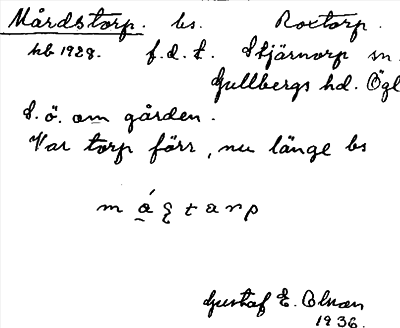 Mårdstorp. bs. Roxtorp.
hb 1928. f.d.t. Stjärnorp sn.
Gullbergs hd. Ögl
S.ö. om gården.
Var torp förr, nu länge bs
Gustaf E. Olson
1936.